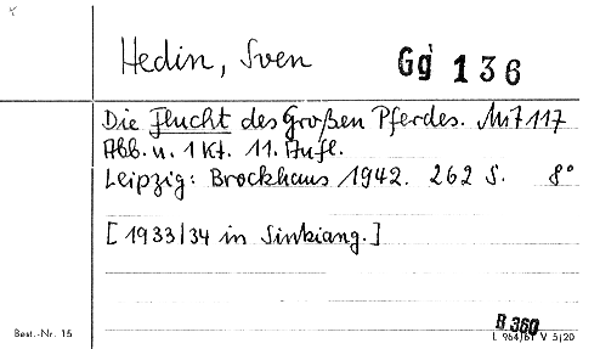 Hedin, Sven
Gg 136
Die Flucht des Großen Pferdes. Mit 117
Abb. u. 1 Kt. 11. Aufl.
Leipzig: Brockhaus 1942. 262 S. 8°
[1933/34 in Sinkiang.]
B 360
Best.-Nr. 15
V 5/20